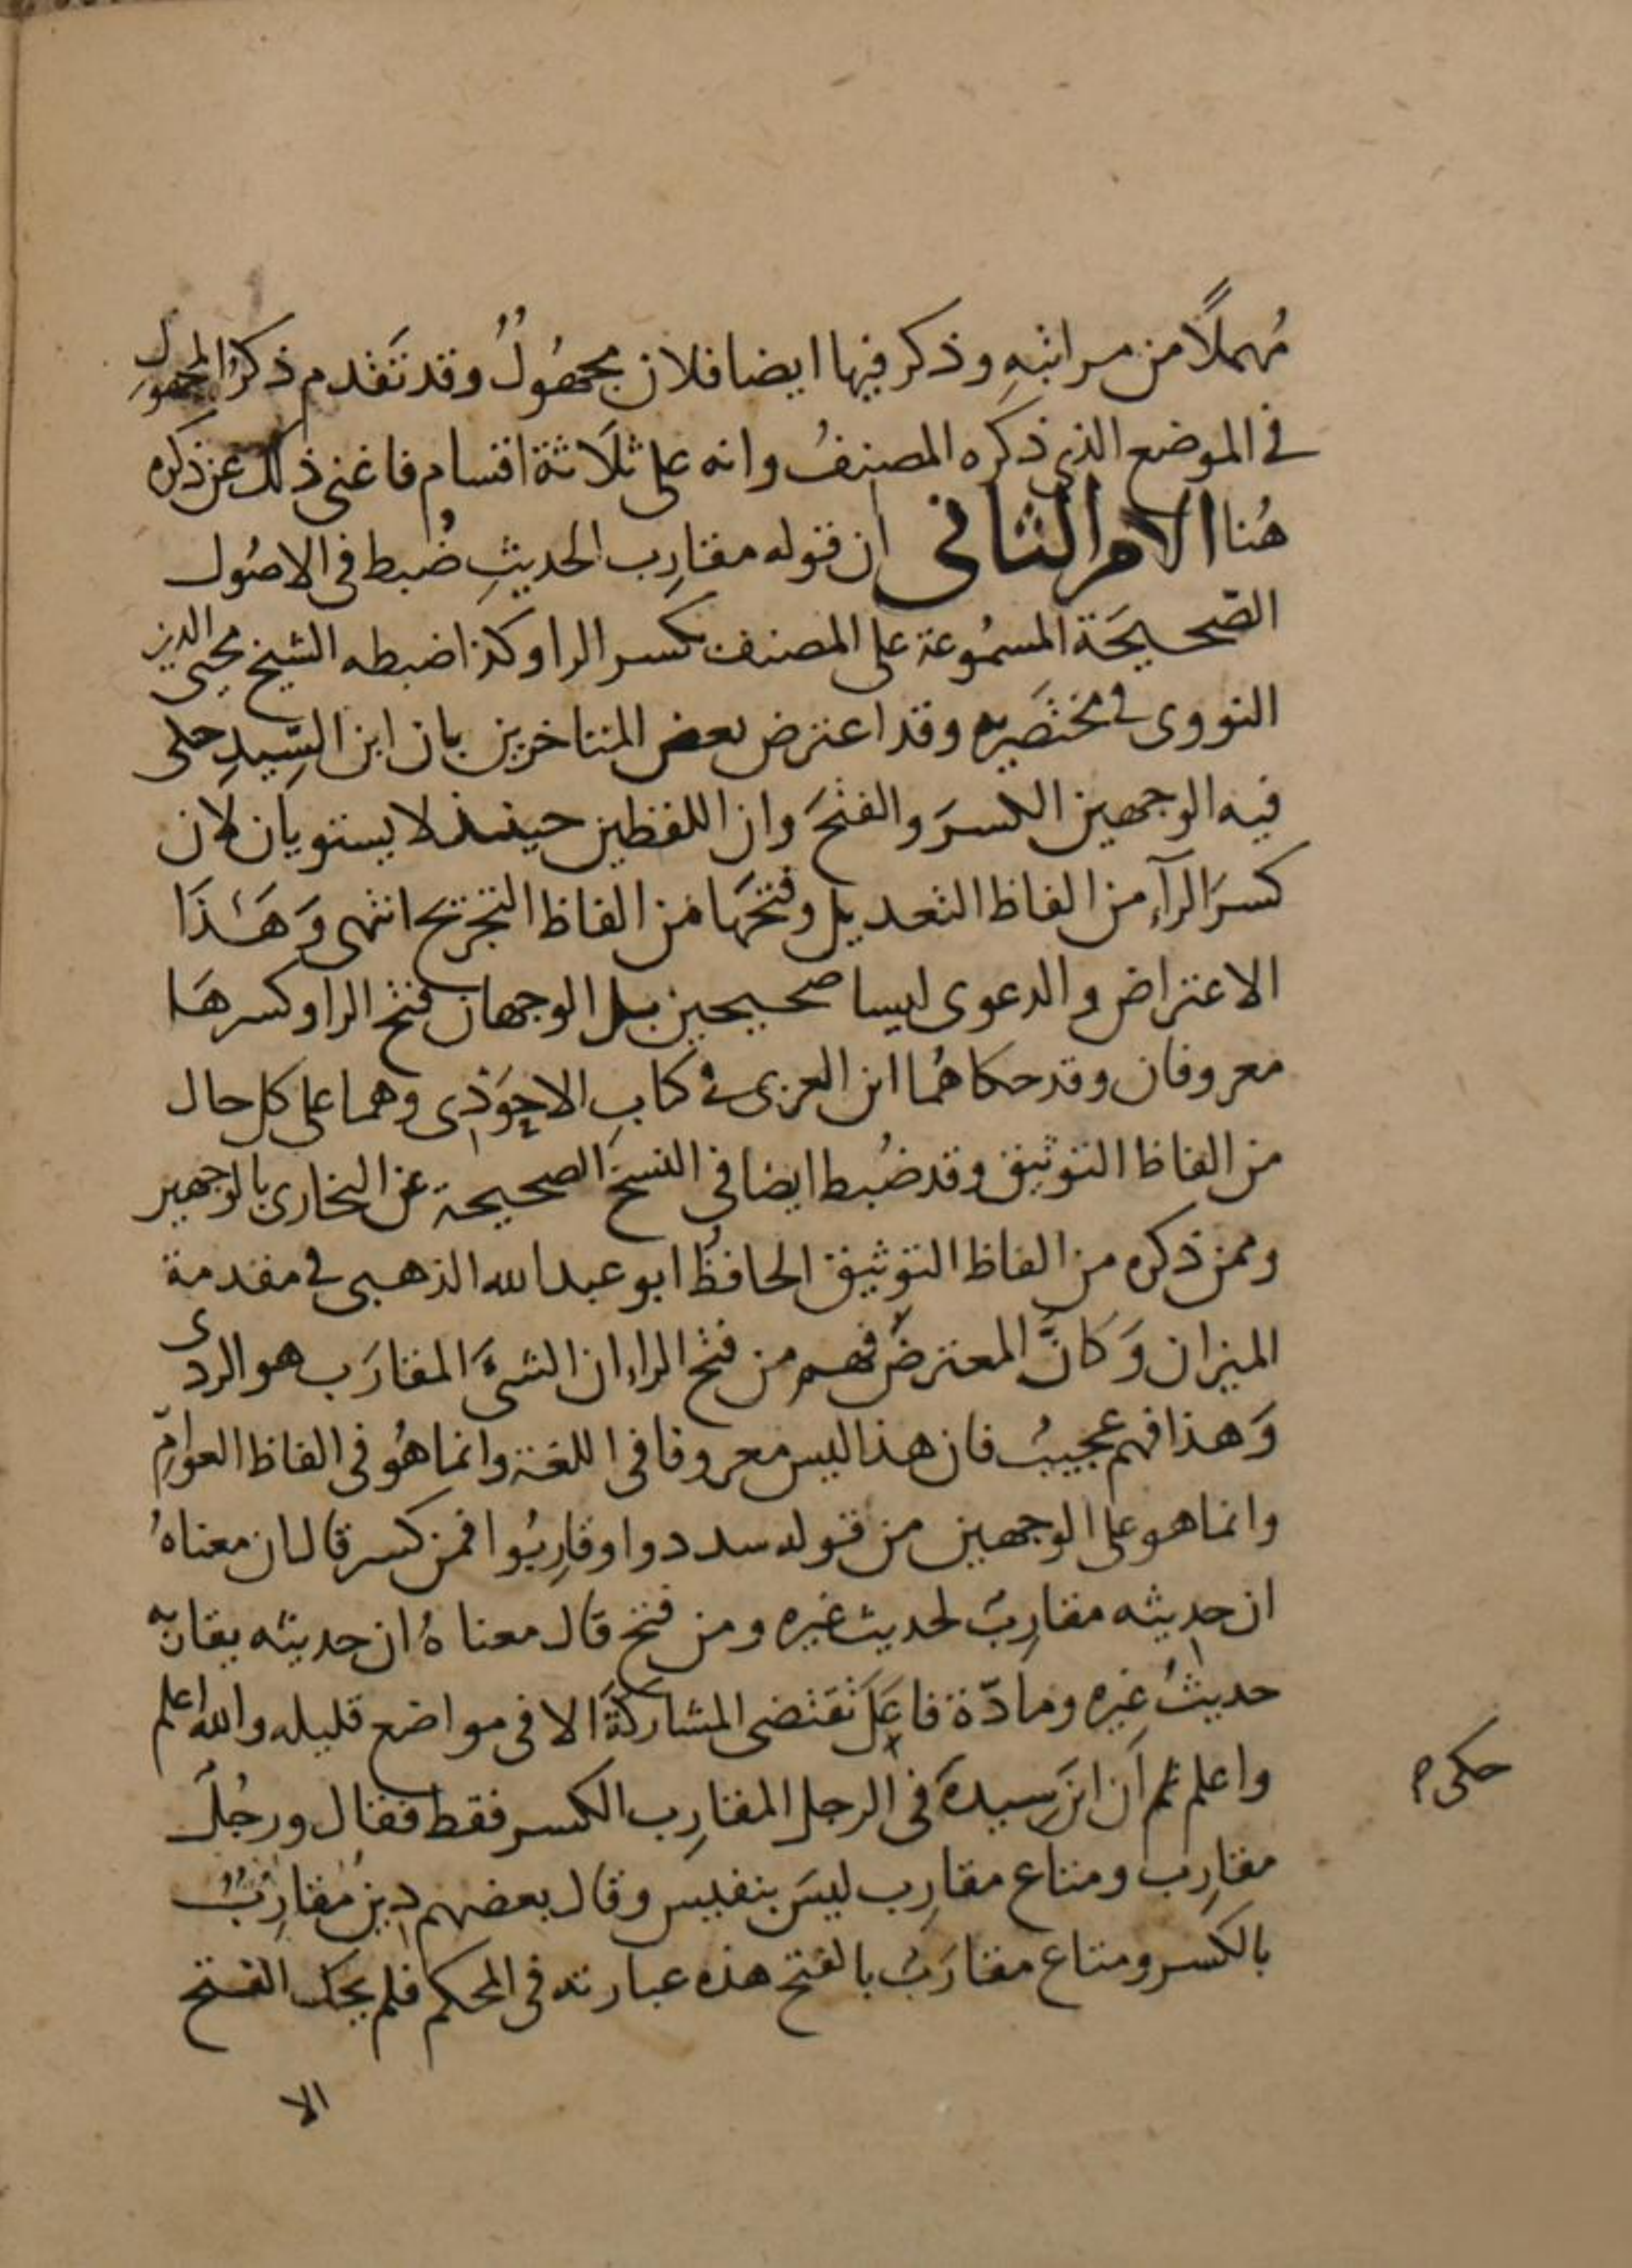 مُهملًا من مراتبهِ وذكر فيها ايضا فلان مجهُولٌ وقد تَقدم ذكرُ المجهول
في الموضع الذى ذكره المصنفُ وانه على ثلَاثة اقسام فاغنى ذلك عن ذكره
هُنا الامر الثانى ان قوله مقارِب الحديثِ ضُبط فى الاصُول
الصّحيحَة المسمُوعة على المصنف بكسر الرا وكذا ضبطه الشيخ محيى الدين
النووى في مختصَريه وقد اعترض بعض المتاخرين بان ابن السِّيدِ حكى
فيه الوجهين الكسرَ والفتحَ وان اللفظين حينئذ لا يستويان لان
كسرَ الرآءِ من الفاظ التعديل وفتحَها من الفاظ التجريح انتهى وَهَذَا
الاعتراض والدعوى ليسا صحيحين بل الوجهان فتح الرا وكسرهَا
معروفان وقد حكاهُما ابن العربى في كتابِ الاحوَذِى وهما على كل حال
من الفاظ التوثيق وقد ضُبط ايضا فى النسخ الصحيحة عن البخارى بالوجهين
وممن ذكره من الفاظ التوثيق الحافظُ ابو عبد الله الذهبى في مقدمة
الميزان وَكانَّ المعترضَ فهم من فتح الراء ان الشىَ المقارَب هو الردى
وَهذا فهم عجيبُ فان هذا ليس معروفا فى اللغة وانما هُو فى الفاظ العوامِّ
وانما هو على الوجهين من قوله سددوا وقارِبُوا فمن كسر قال ان معناهُ
ان حديثه مقارِبُ لحديث غيره ومن فتح قال معناهُ ان حديثه يقاربه
حديثُ غيره ومادّة فاعَلَ تقتضى المشاركةَ الا فى مواضع قليله والله اعلم
واعلم ثم ان ابنَ سِيدةَ فى الرجل المقارِب الكسر فقط فقال ورجُلٌ
حكى م
مقارِب ومتاع مقارِب ليسَ بنفيس وقال بعضهم دين مقارِبٌ
بالكسر ومتاع مقارَبُ بالفتح هذه عبارته فى المحكم فلم يحك الفتح
الا